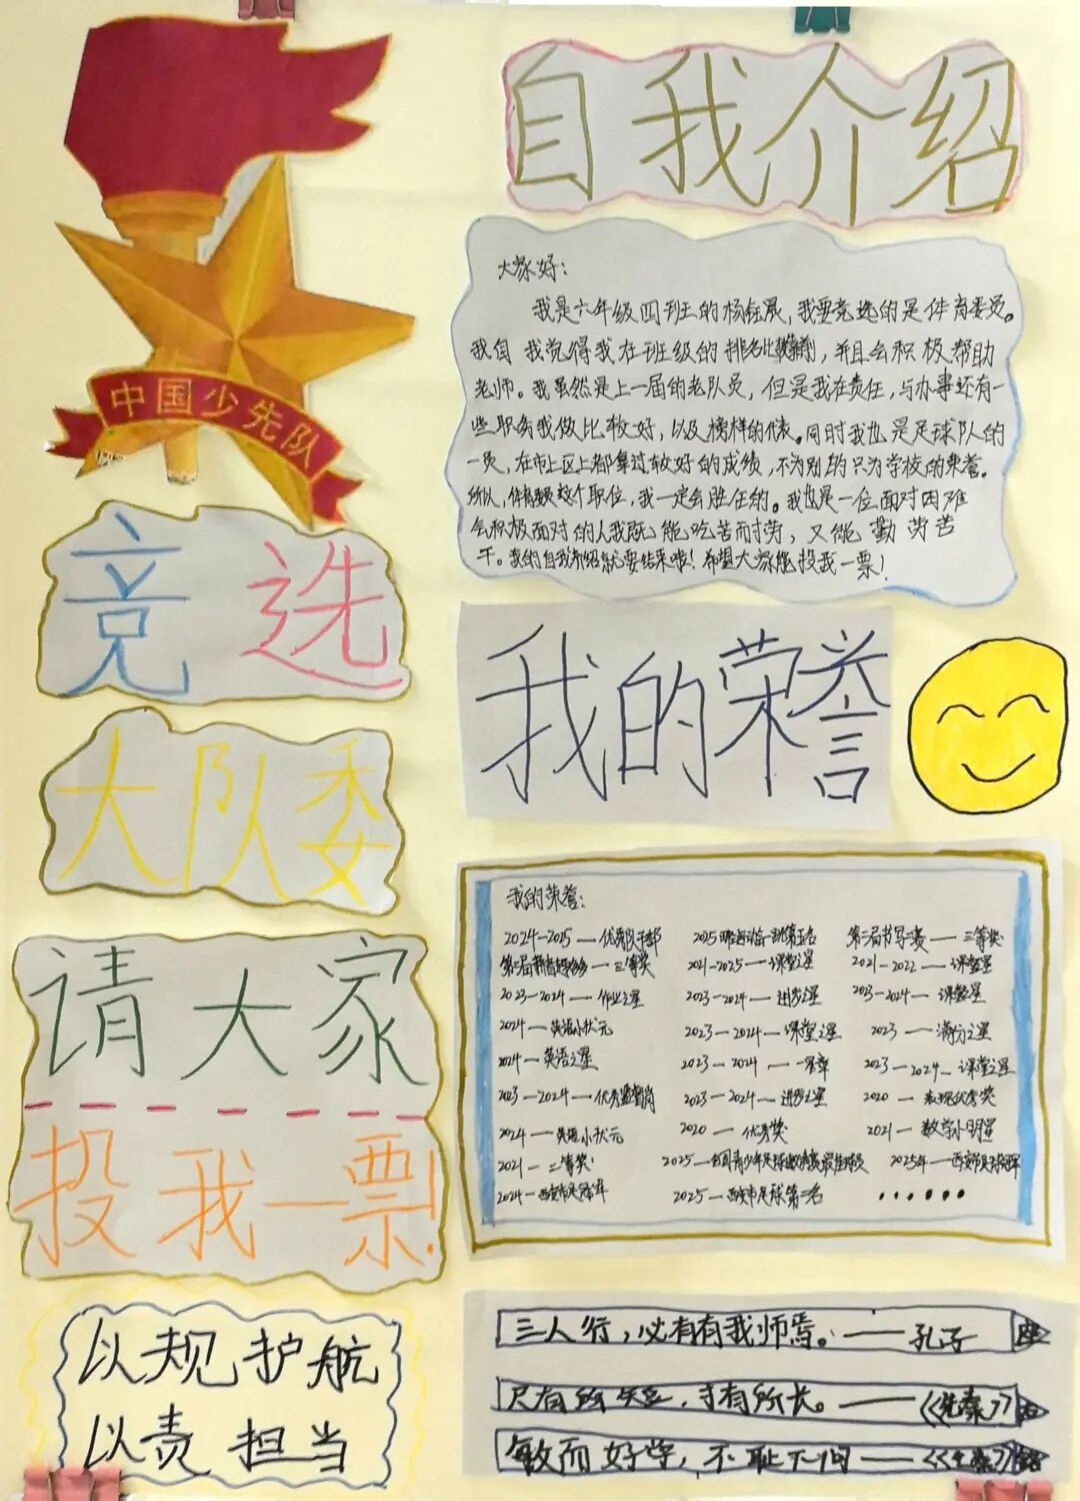 中国少先队
竞选
大队委
请大家
投我一票!
以规护航
以责担当
自我介绍
大家好:
我是六年级四班的杨钰晨,我要竞选的是体育委员。
我自我觉得我在班级的排名比较靠前,并且会积极帮助
老师。我虽然是上一届的老队员,但是我在责任,与办事还有一
些职务我做比较好,以及榜样的代表。同时我也是足球队的
一员,在市上区上都拿过较好的成绩,不为别的只为学校的荣誉。
所以,体育委员这个职位,我一定会胜任的。我也是一位面对困难
会积极面对的人我既能吃苦而耐劳,又能勤劳苦
干。我的自我介绍就要结束啦!希望大家能投我一票!
我的荣誉
我的荣誉:
2024-2025—优秀队干部 2025 第五名 第二届书写赛—三等奖
三等奖 2021-2025—课堂之星 2021-2022—课堂星
2023-2024—作业之星 2023-2024—进步之星 2023-2024—课堂星
2024—英语小状元 2023-2024—课堂之星 2023—满分之星
2024—英语之星 2023-2024—一等奖 2023-2024—课堂之星
2023-2024—优秀监督岗 2023-2024—进步之星 2020—表现优秀奖
2024—英语小状元 2020—优秀奖 2021—数学小明星
2021—二等奖 2025—全国青少年足球 最佳球员 2025年—西安市足球冠军
2024—西安市足球冠军 2025—西安市足球第二名 ······
三人行,必有有我师焉。——孔子
尺有所短,寸有所长。——《先秦》
敏而好学,不耻下问——《先秦》